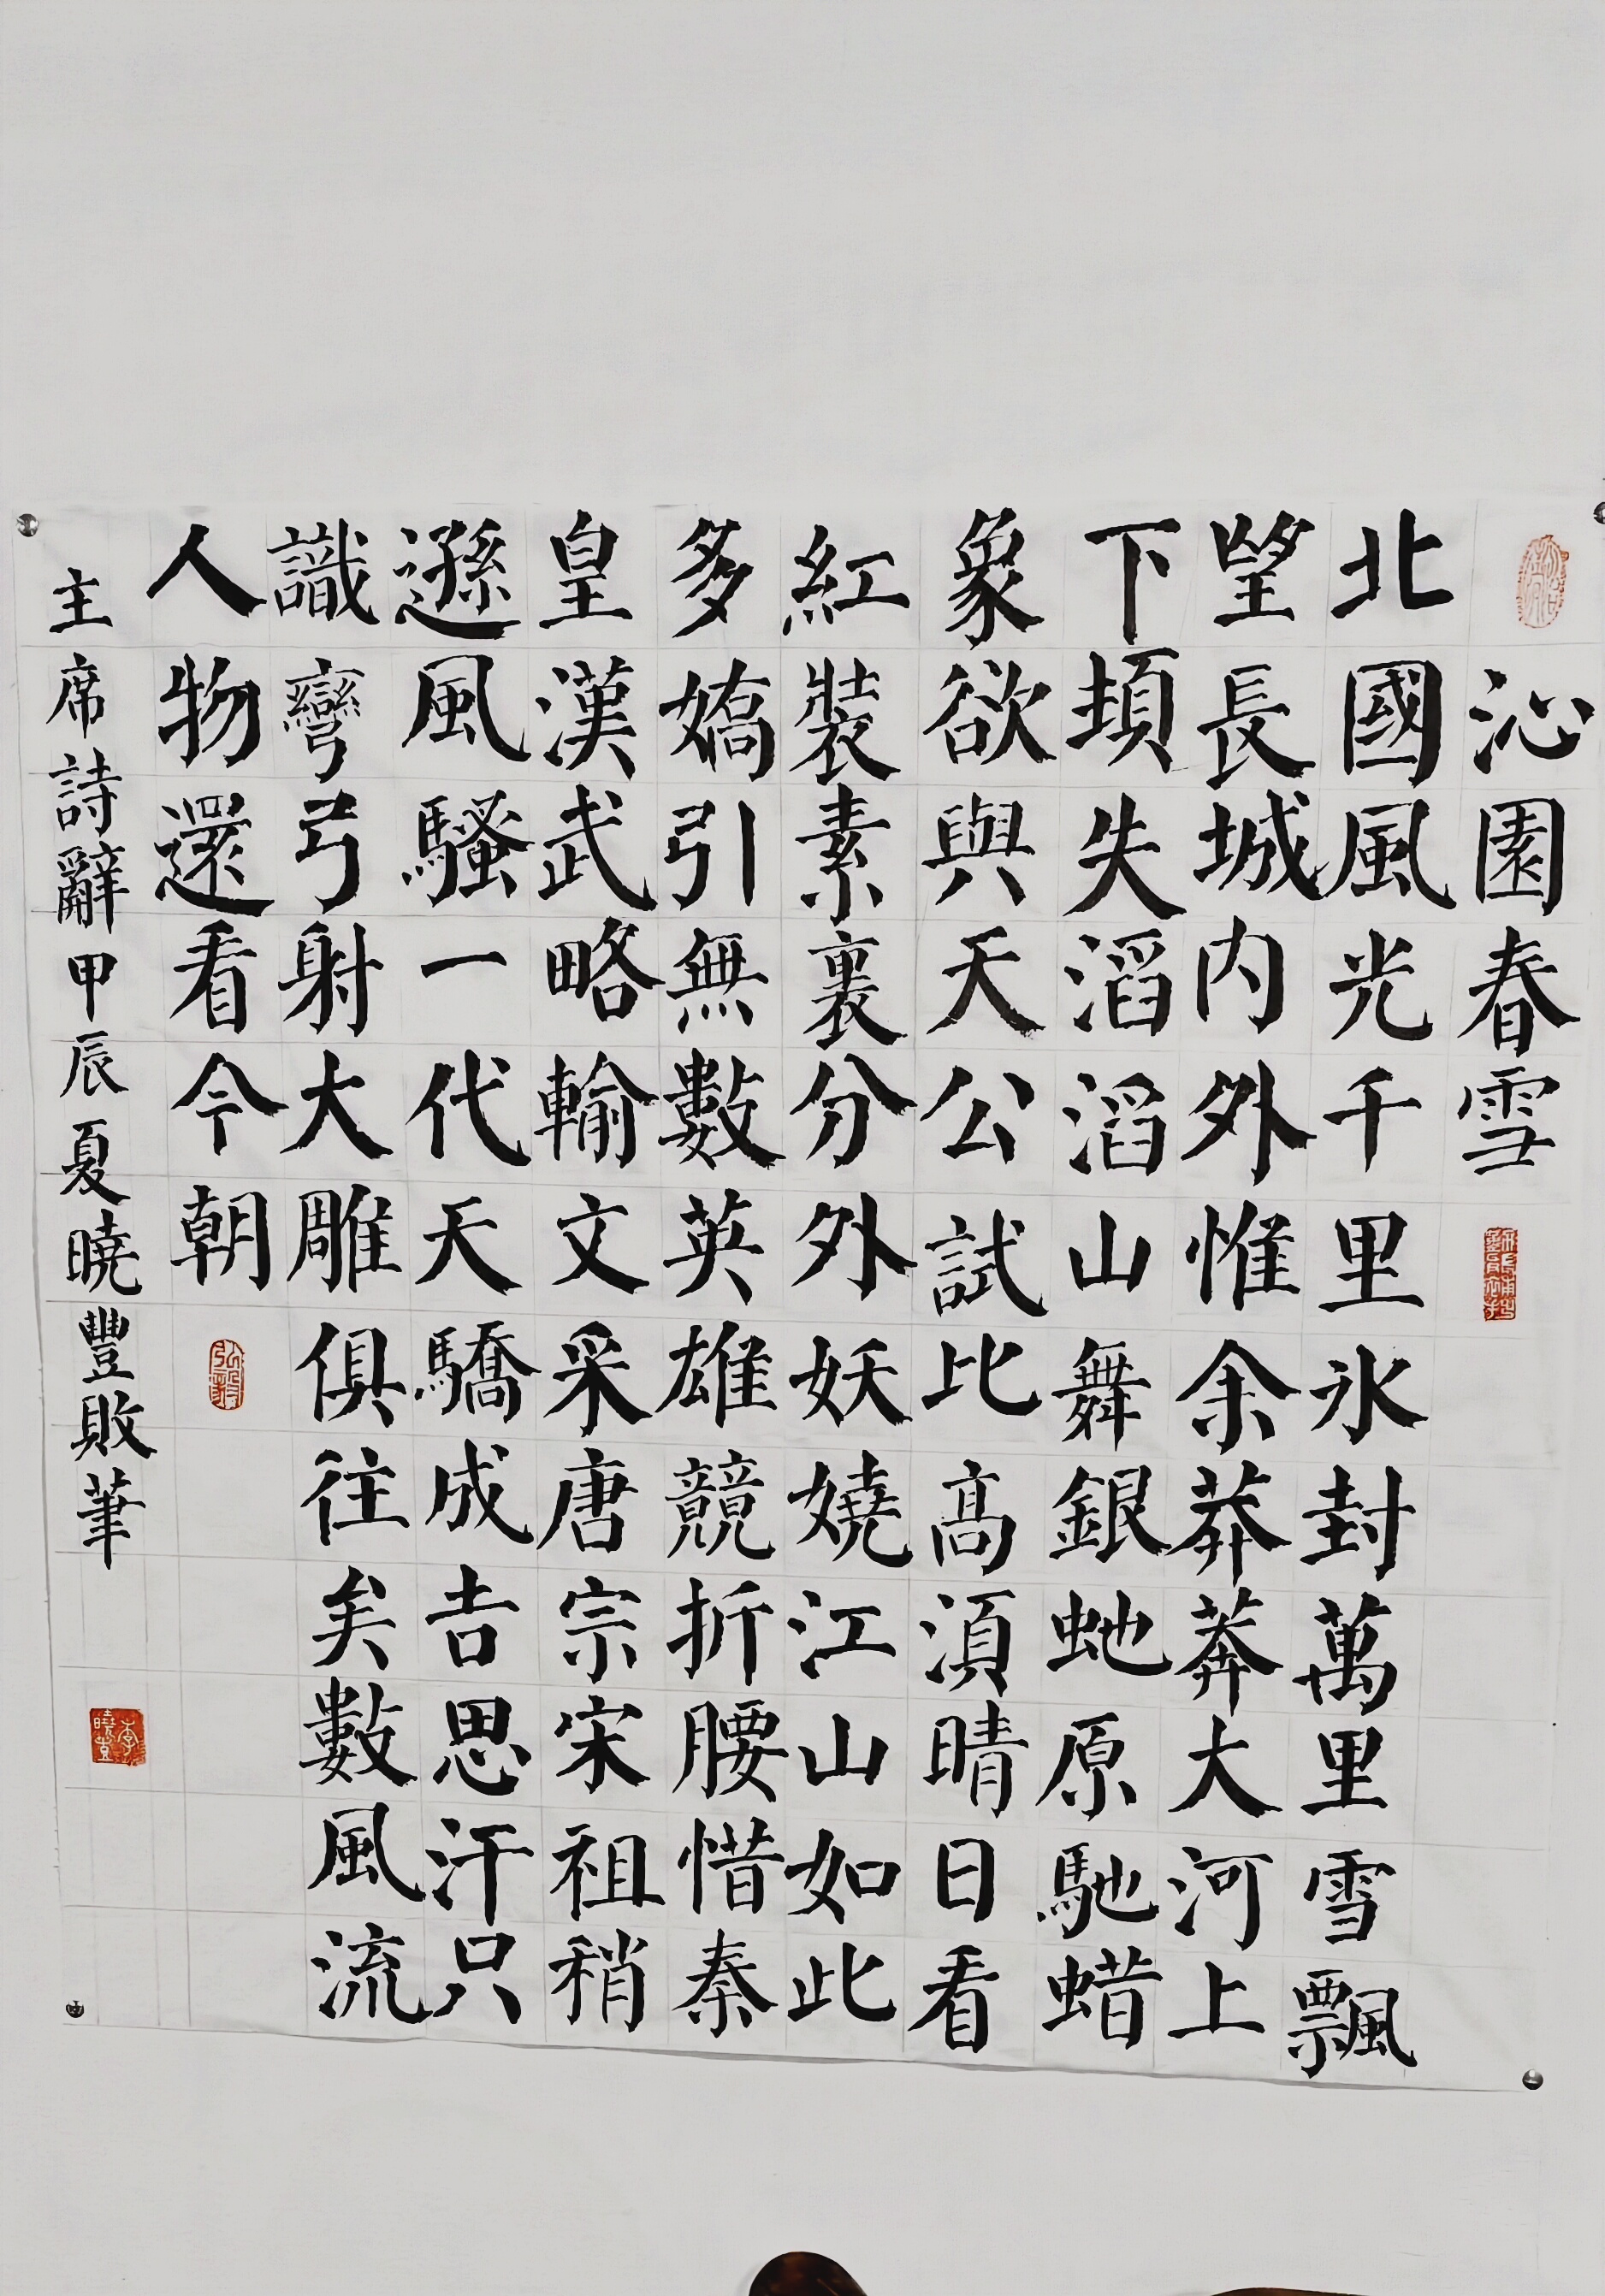 沁園春雪
北國風光千里氷封萬里雪飄
望長城内外惟余莽莽大河上
下頓失滔滔山舞銀虵原馳蜡
象欲與天公試比高須晴日看
紅裝素裹分外妖嬈江山如此
多嬌引無數英雄競折腰惜秦
皇漢武略輸文采唐宗宋祖稍
遜風騷一代天驕成吉思汗只
識彎弓射大雕俱往矣數風流
人物還看今朝
主席詩辭甲辰夏曉豐敗筆
李曉豐